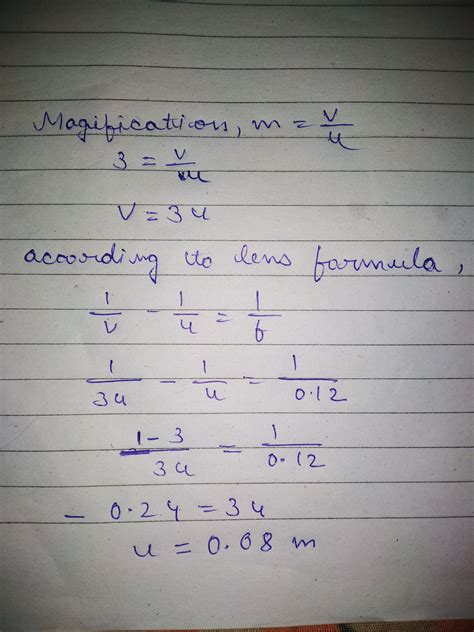 Magification, m = v/u
3 = v/u
V = 3u
according to lens formula,
1/v - 1/u = 1/f
1/3u - 1/u = 1/0.12
1-3/3u = 1/0.12
- 0.24 = 3u
u = 0.08 m